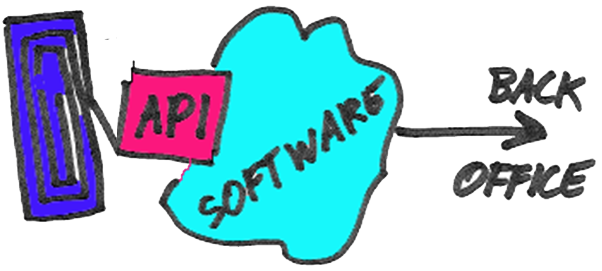 API
SOFTWARE
BACK
OFFICE